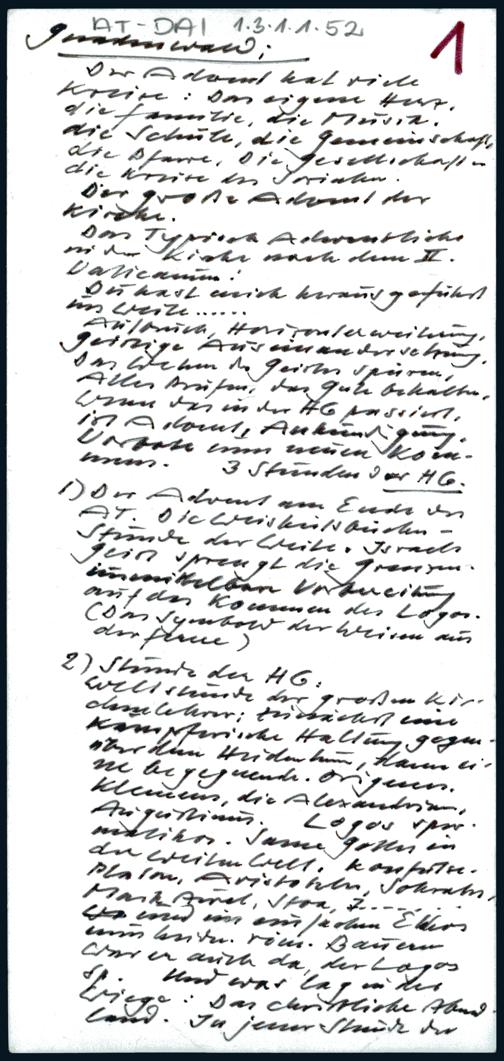 AT-DAI 1.3.1.1.52
1
Gnadenwald:
Der Advent hat viele
Kreise: Das eigene Herz,
die Familie, die Musik.
die Schule, die Gemeinschaft,
die Pfarre, die Gesellschaft
die Kreise der
Der große Advent der
Kirche.
Das Typisch Adventliche
in der Kirche nach dem II.
Vaticanum:
Du hast mich herausgeführt
ins Weite......
Aufbruch, Horizonterweiterung,
geistige Auseinandersetzung.
Das Wehen des Geistes spüren,
Alles prüfen, das Gute behalten,
wenn das in der HG passiert,
ist Advent, Ankündigung,
Vorbote zum neuen Kom-
men. 3 Stunden der HG.
1) Der Advent am Ende des
AT. Die Weisheitsbücher -
Stunde der Weite. Israels
Geist sprengt die Grenzen.
unmittelbare Vorbereitung
auf das Kommen des Logos.
(Das Symbol der Weisen aus
der Ferne)
2) Stunde der HG:
Weltstunde der großen Kir-
chenlehrer; zunächst eine
kämpferische Haltung gegen-
über dem Heidentum, dann ei-
ne begegnende. Origenes.
Klemens, die Alexandriner,
Augustinus. Logos sper-
matikos. Same Gottes in
der weiten Welt. Konfutse.
Platon, Aristoteles, Sokrates,
Mark Aurel, Stoa,
und im einfachen Ethos
röm. Bauern
war er auch da, der Logos
sp. Und was lag in der
Wiege: Das christliche Abend
land. In jener Stunde der